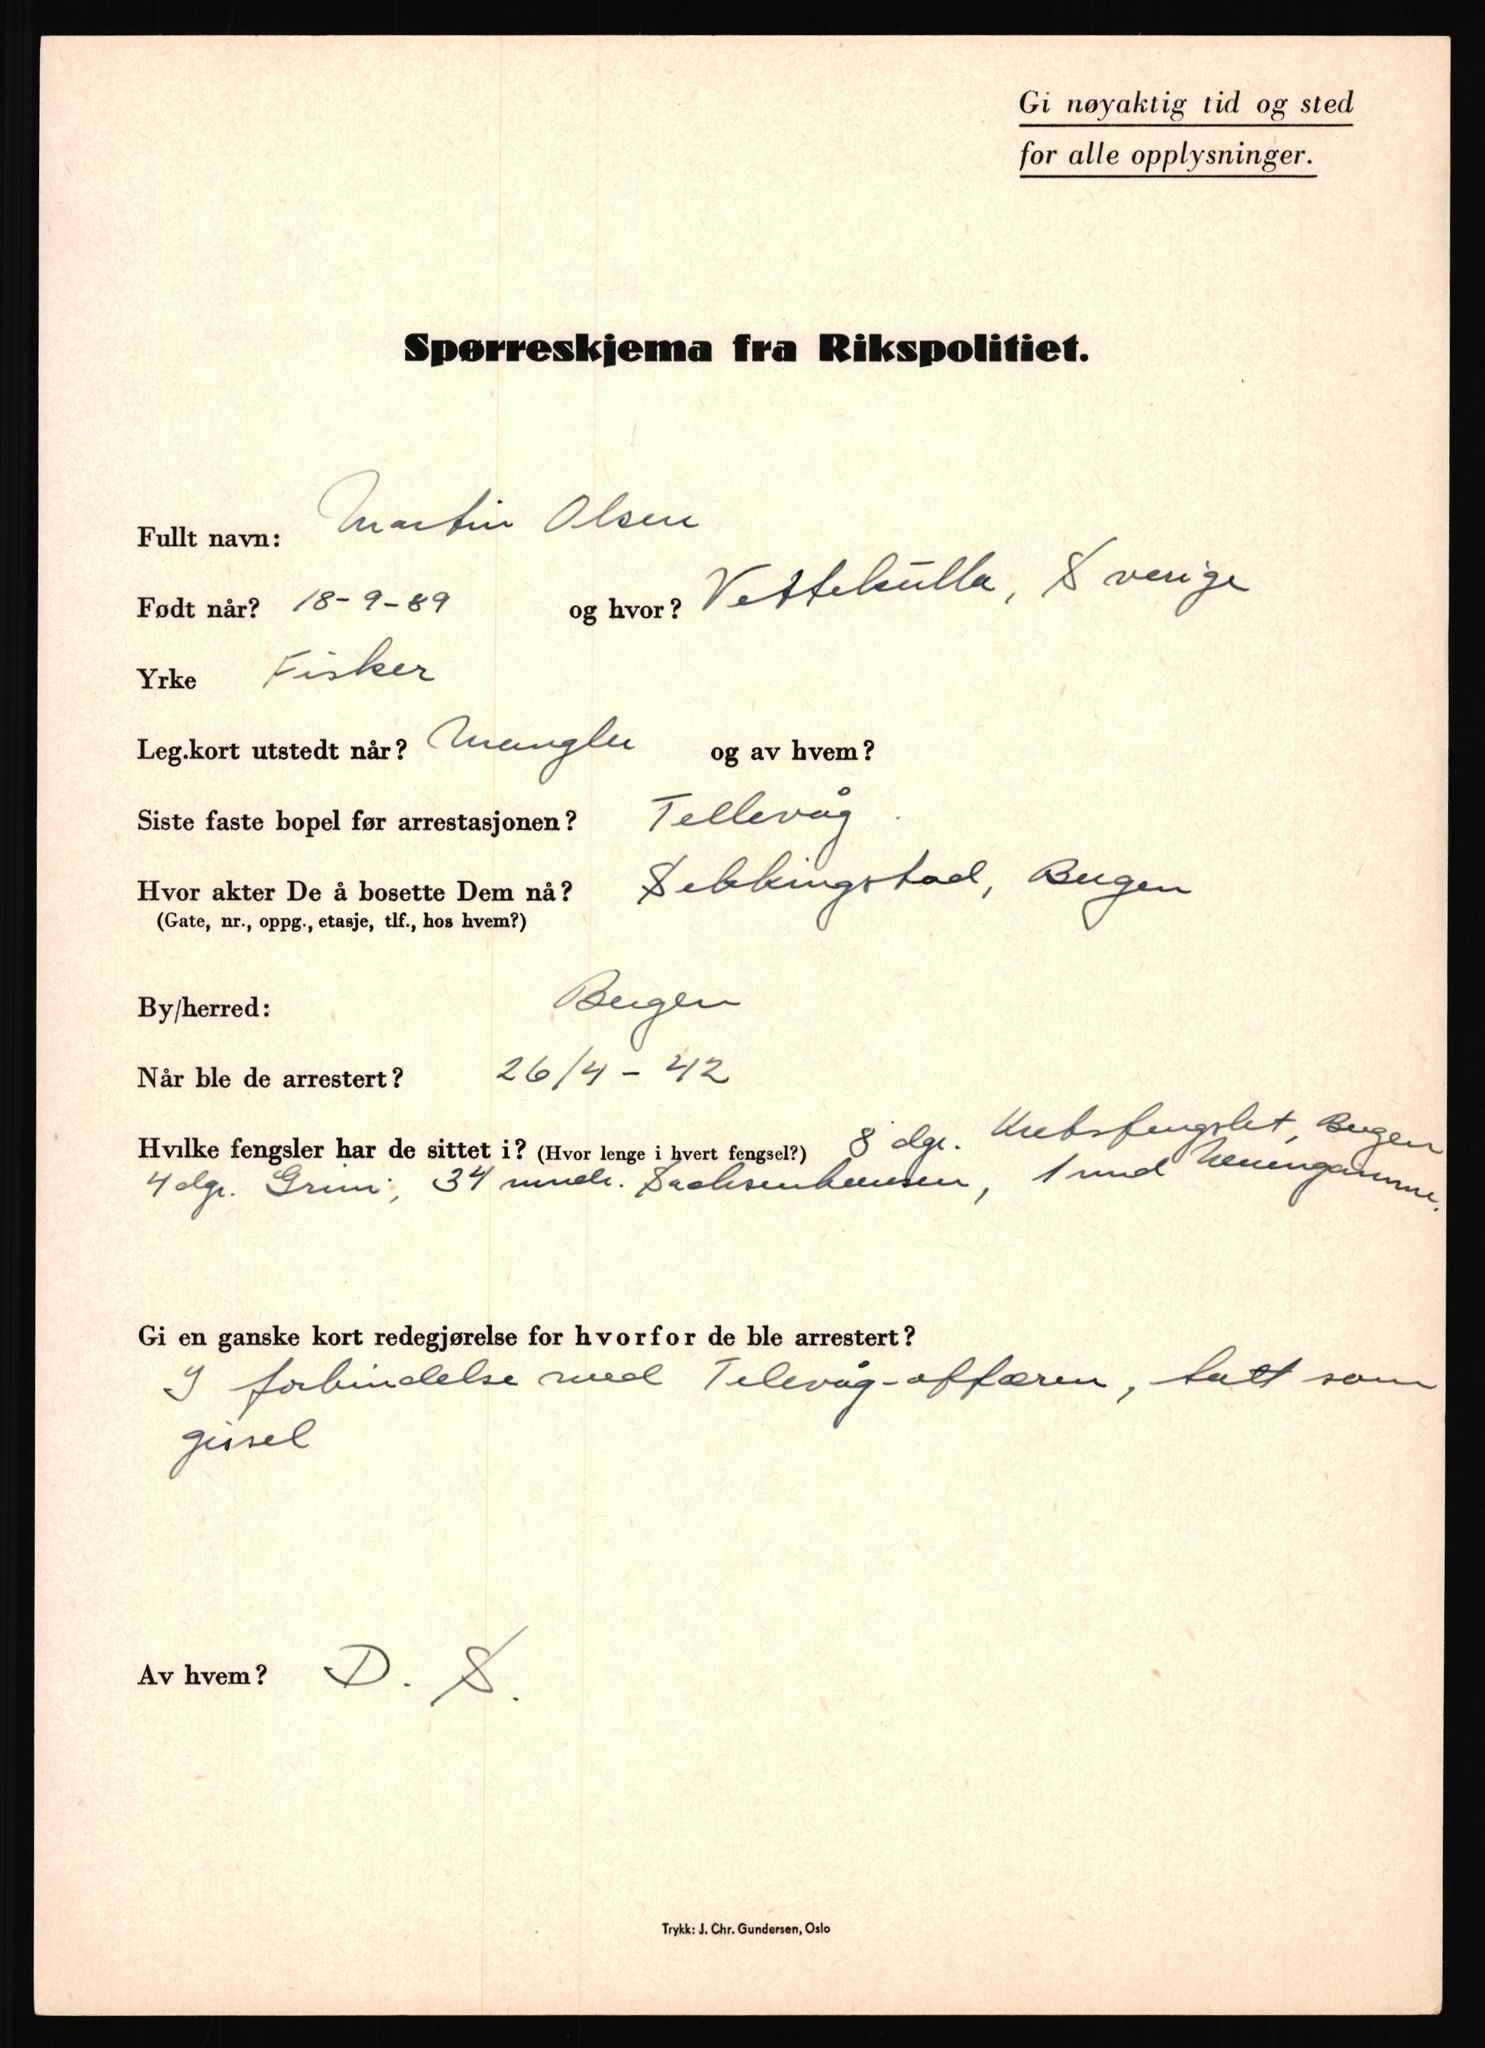 Gi nøyaktig tid og sted
for alle opplysninger.
Spørreskjema fra Rikspolitiet.
Fullt navn: Martin Olsen
Født når? 18-9-89 og hvor? Vettekulla, Sverige
Yrke Fisker
Leg.kort utstedt når? Mangler og av hvem?
Siste faste bopel før arrestasjonen? Tellevåg.
Hvor akter De å bosette Dem nå? Sekkingstad, Bergen
(Gate, nr., oppg., etasje, tlf., hos hvem?)
By/herred: Bergen
Når ble de arrestert? 26/4 - 42
Hvilke fengsler har de sittet i? (Hvor lenge i hvert fengsel?) 8 dgr. Kretsfengslet, Bergen
4 dgr. Grini, 34 mndr. Sachsenhausen, 1 mnd Neuengamme.
Gi en ganske kort redegjørelse for hvorfor de ble arrestert?
I forbindelse med Televåg-affæren, tatt som
gissel
Av hvem? D. S.
Trykk: J. Chr. Gundersen, Oslo